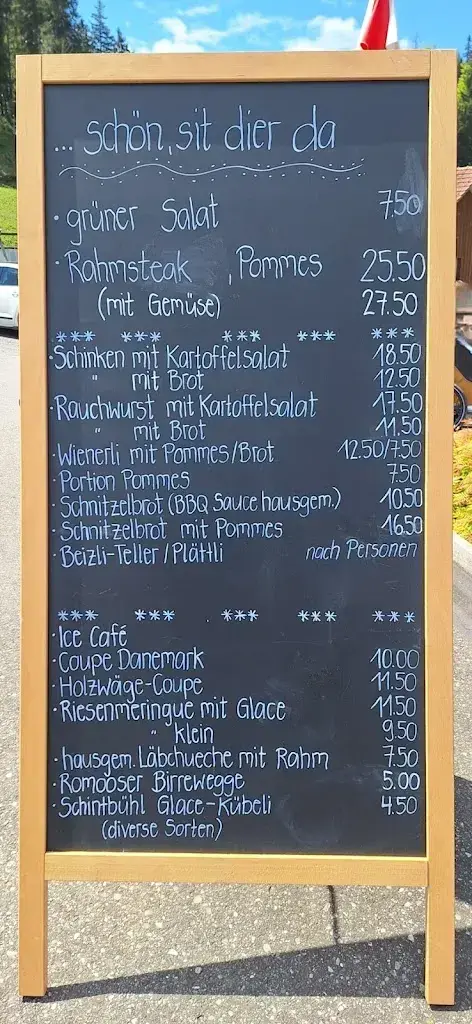 ... schön, sit dier da
· grüner Salat 7.50
· Rahmsteak , Pommes 25.50
(mit Gemüse) 27.50
*** *** *** *** ***
· Schinken mit Kartoffelsalat 18.50
" mit Brot 12.50
· Rauchwurst mit Kartoffelsalat 17.50
" mit Brot 11.50
· Wienerli mit Pommes/Brot 12.50/7.50
· Portion Pommes 7.50
· Schnitzelbrot (BBQ Sauce hausgem.) 10.50
· Schnitzelbrot mit Pommes 16.50
· Beizli-Teller / Plättli nach Personen
*** *** *** *** ***
· Ice Café
· Coupe Danemark 10.00
· Holzwäge-Coupe 11.50
· Riesenmeringue mit Glace 11.50
" klein 9.50
· hausgem. Läbchueche mit Rahm 7.50
· Romooser Birrewegge 5.00
· Schintbühl Glace-Kübeli 4.50
(diverse Sorten)